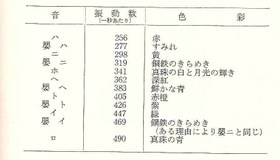 音 振動数 色彩
(一秒あたり)
ハ 256 赤
嬰ハ 277 すみれ
ニ 298 黄
嬰ニ 319 鋼鉄のきらめき
ホ 341 真珠の白と月光の輝き
ヘ 362 深紅
嬰ヘ 383 鮮かな青
ト 405 赤橙
嬰ト 426 紫
イ 447 緑
嬰イ 469 鋼鉄のきらめき
(ある理由により嬰ニと同じ)
ロ 490 真珠の青